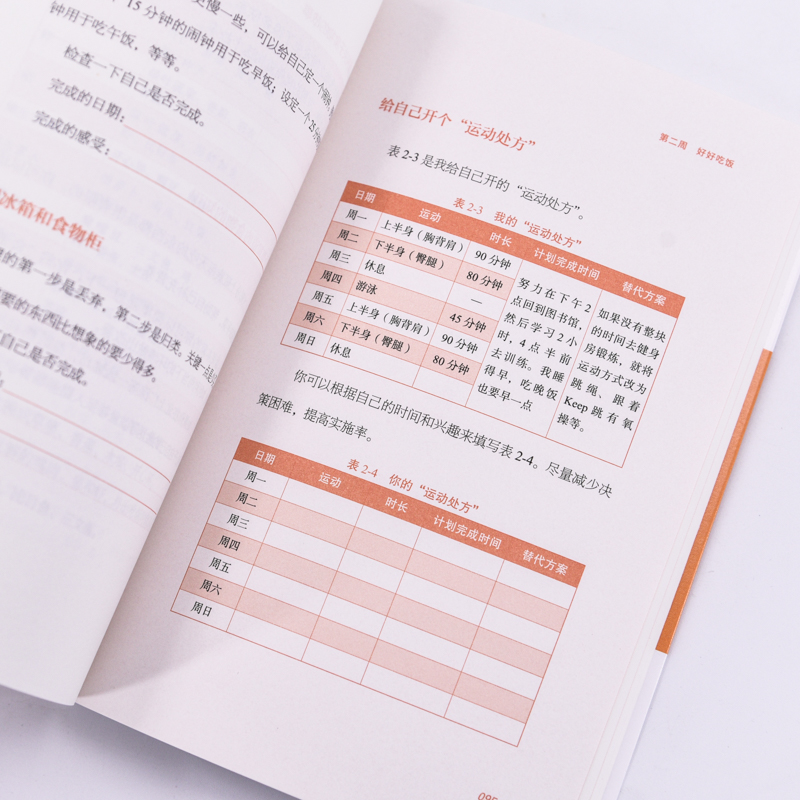 更慢一些，可以给自己定一个闹钟
15分钟的闹钟用于吃早饭；设定一个25分钟
钟用于吃午饭，等等。
检查一下自己是否完成。
完成的日期：
完成的感受：
冰箱和食物柜
的第一步是丢弃，第二步是归类，关键一点
要的东西比想象的要少得多。
自己是否完成。
第二周 好好吃饭
给自己开个“运动处方”
表2-3是我给自己开的“运动处方”。
表2-3 我的“运动处方”
日期 运动 时长 计划完成时间 替代方案
周一 上半身（胸背肩） 90分钟
周二 下半身（臀腿） 80分钟
周三 休息 —
周四 游泳 45分钟
周五 上半身（胸背肩） 90分钟
周六 下半身（臀腿） 80分钟
周日 休息
努力在下午2
点回到图书馆，
然后学习2小
时，4点半前
去训练。我睡
得早，吃晚饭
也要早一点
如果没有整块
的时间去健身
房锻炼，就将
运动方式改为
跳绳、跟着
Keep跳有氧
操等。
你可以根据自己的时间和兴趣来填写表2-4。尽量减少决
策困难，提高实施率。
表2-4 你的“运动处方”
日期 运动 时长 计划完成时间 替代方案
周一
周二
周三
周四
周五
周六
周日